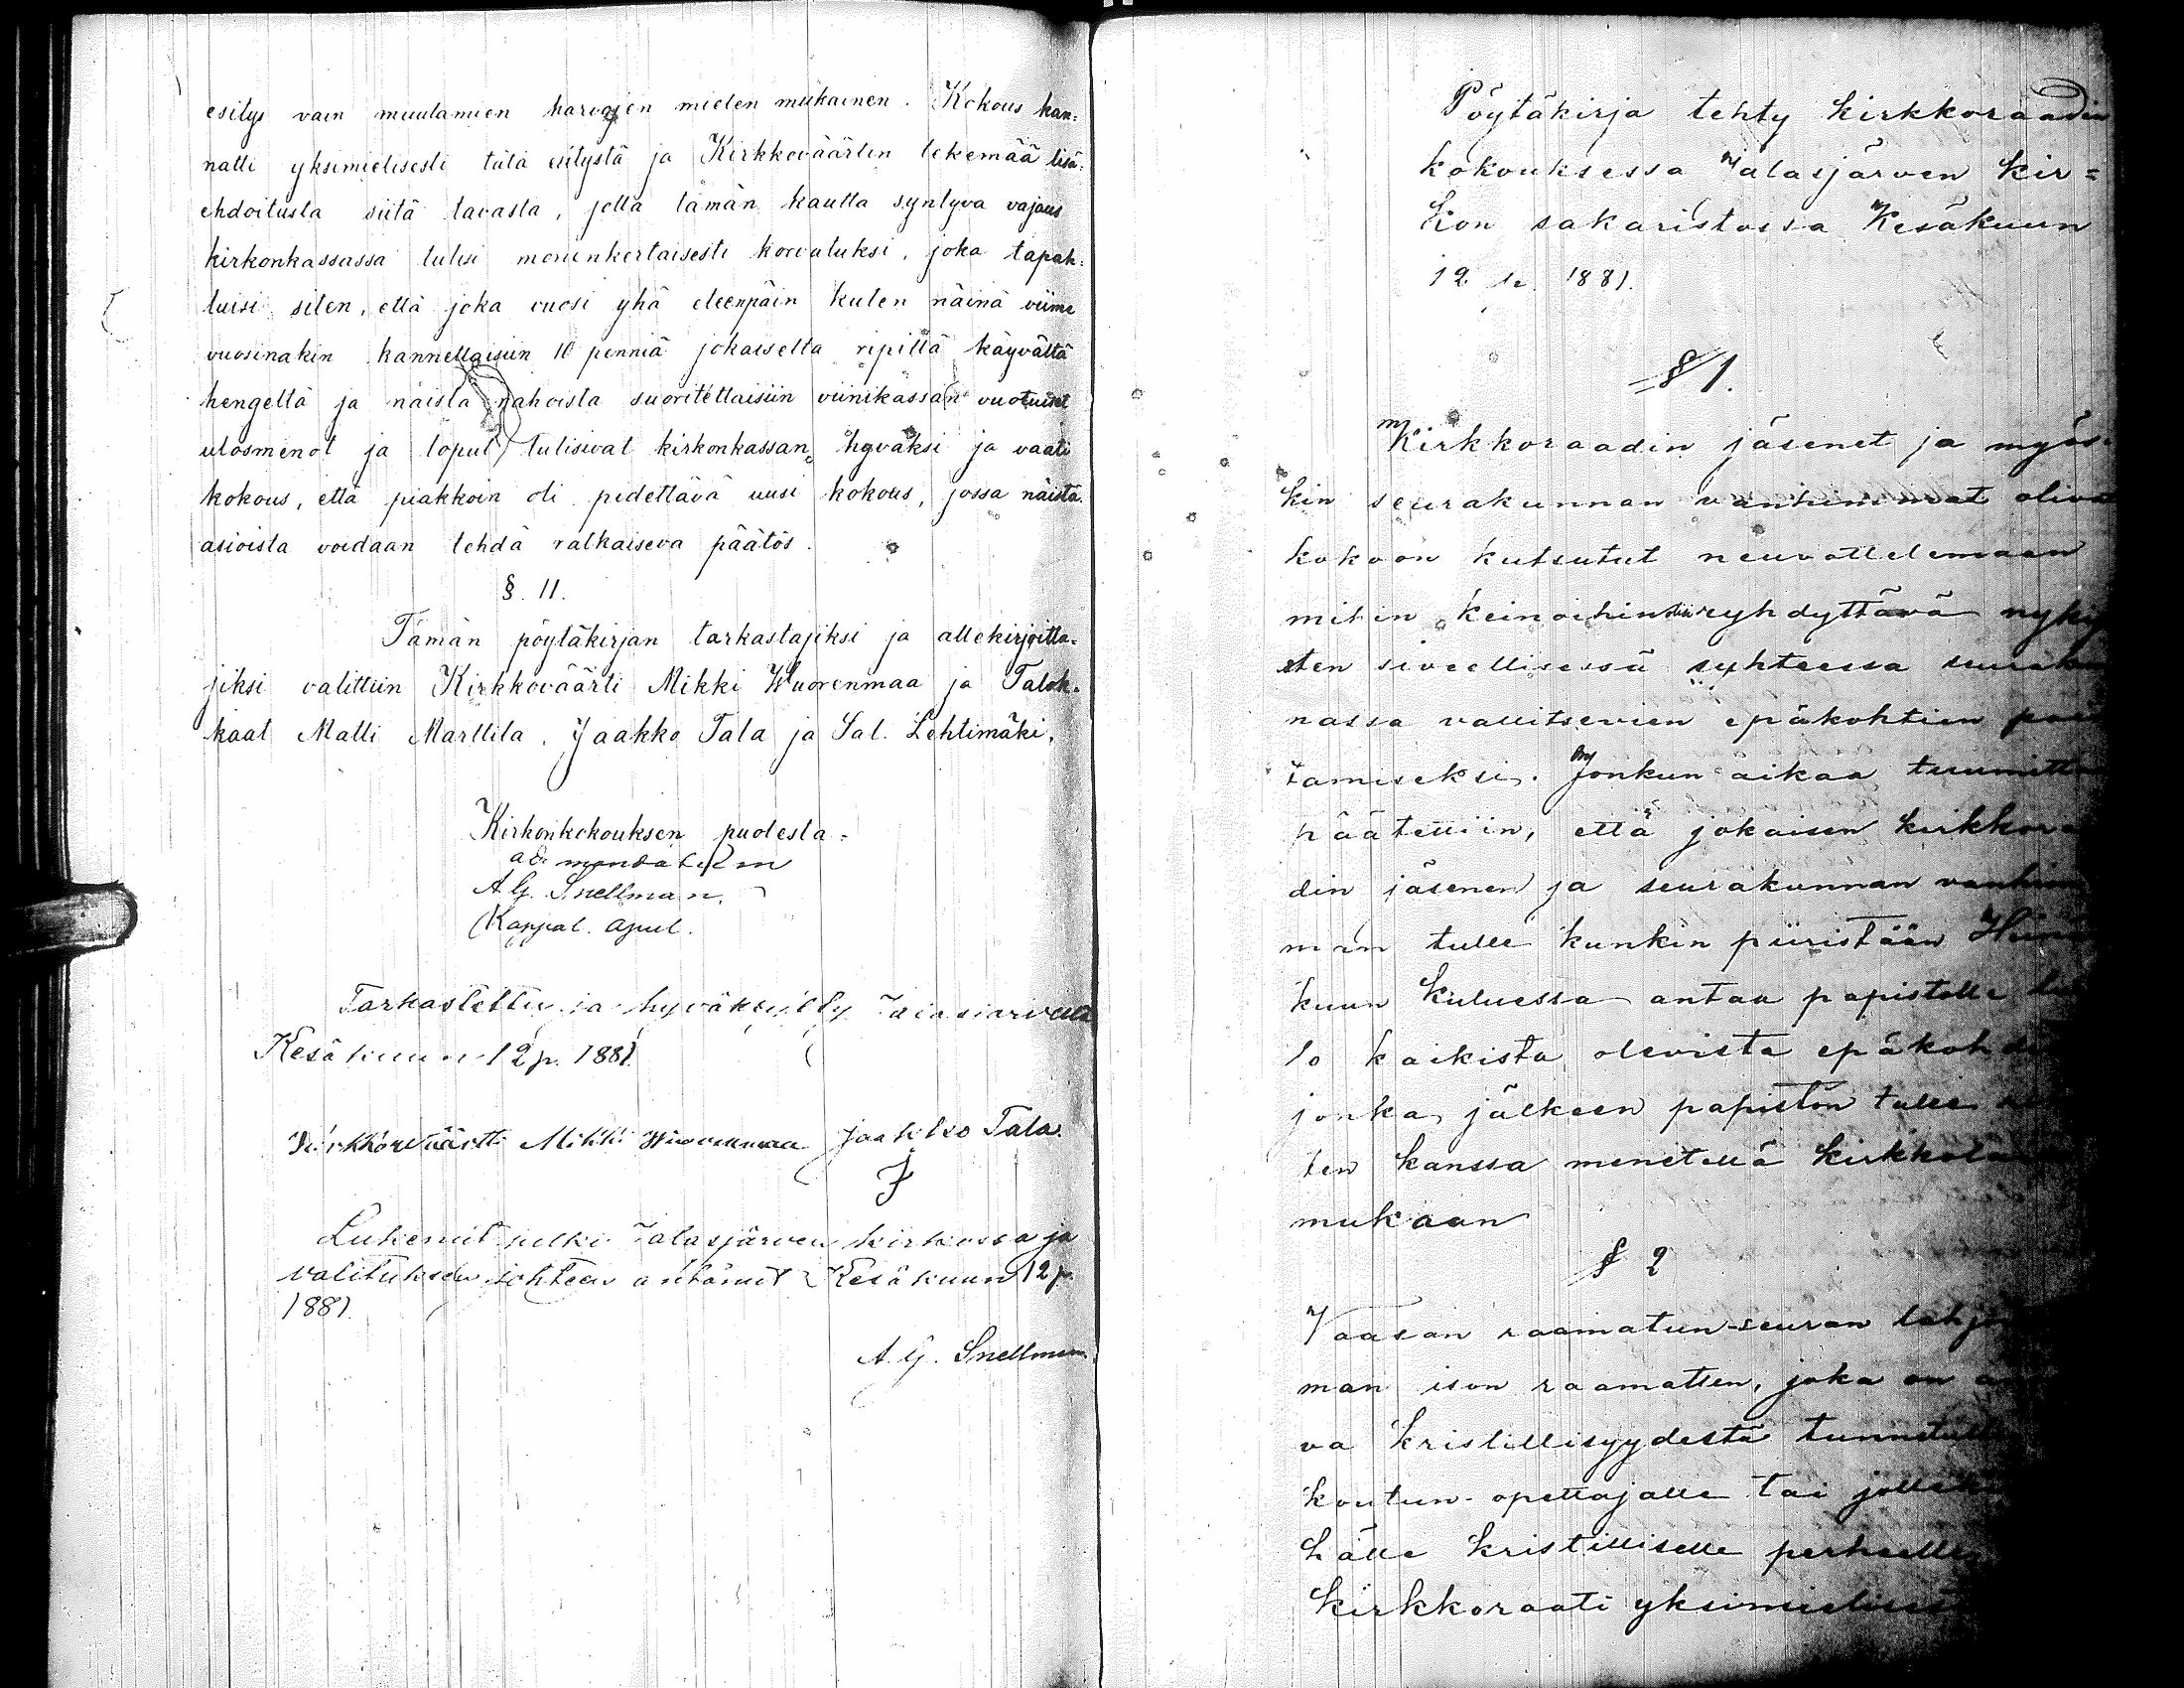 esitys vain muutamien harvojen mielen mukainen. Kokous kan=
natti yksimielisesti tätä esitystä ja Kirkkoväärtin tekemää lisä=
ehdoitusta siitä tavasta, jolla tämän kautta syntyvä vajaus
kirkonkassassa tulisi moninkertaisesti korvatuksi, joka tapah=
tuisi siten, että joka vuosi yhä eteenpäin kuten näinä viime
vuosinakin kannettaisiin 10 penniä jokaiselta ripillä käyvältä
hengeltä ja näistä rahoista suoritettaisiin viinikassan vuotuiset
ulosmenot ja loput tulisivat kirkonkassan hyväksi ja vaati
kokous, että piakkoin oli pidettävä uusi kokous, jossa näistä
asioista voidaan tehdä ratkaiseva päätös.
§. 11.
Tämän pöytäkirjan tarkastajiksi ja allekirjoitta=
jiksi valittiin Kirkkoväärti Mikki Wuorenmaa ja Talok=
kaat Matti Marttila, Jaakko Tala ja Sal. Lehtimäki.
Kirkonkokouksen puolesta:
ad mandatum
A. G. Snellman
Kappal. apul.
Tarkastettu ja hyväksytty Jalasjärvellä
Kesäkuun 12 p. 1881.
Kirkkoväärtti Mikki Wuorenmaa Jaakko Tala.
Lukenut julki Jalasjärven kirkossa ja
valituksen johteen antanut Kesäkuun 12 p.
1881.
A. G. Snellman.
Pöytäkirja tehty kirkkoraadin
kokouksessa Jalasjärven kir=
kon sakaristossa Kesäkuun
12 1881.
§ 1.
Kirkkoraadin jäsenet ja myös=
kin seurakunnan vanhimmat olivat
kokoon kutsutut neuvottelemaan
mihin keinoihin olisi ryhdyttävä
sten siveellisessä suhteessa
nassa vallitsevien epäkohtien
tamiseksi. Jonkun aikaa tuumittua
päätettiin, että jokaisen kirkkoraa
din jäsenen ja seurakunnan vanhim
man tulee kunkin piiristään Heinä
kuun kuluessa antaa papistolle
lo kaikista olevista epäkohdista
jonka jälkeen papiston tulee
ten kanssa menetellä kirkkolain
mukaan
§ 2
Vaasan raamatun-seuran lahjoitta
man ison raamatun, joka on
va kristillisyydestä tunnetulle
koulun-opettajalle tai jollekin
hälle kristilliselle perheelle
kirkkoraati yksimielisesti